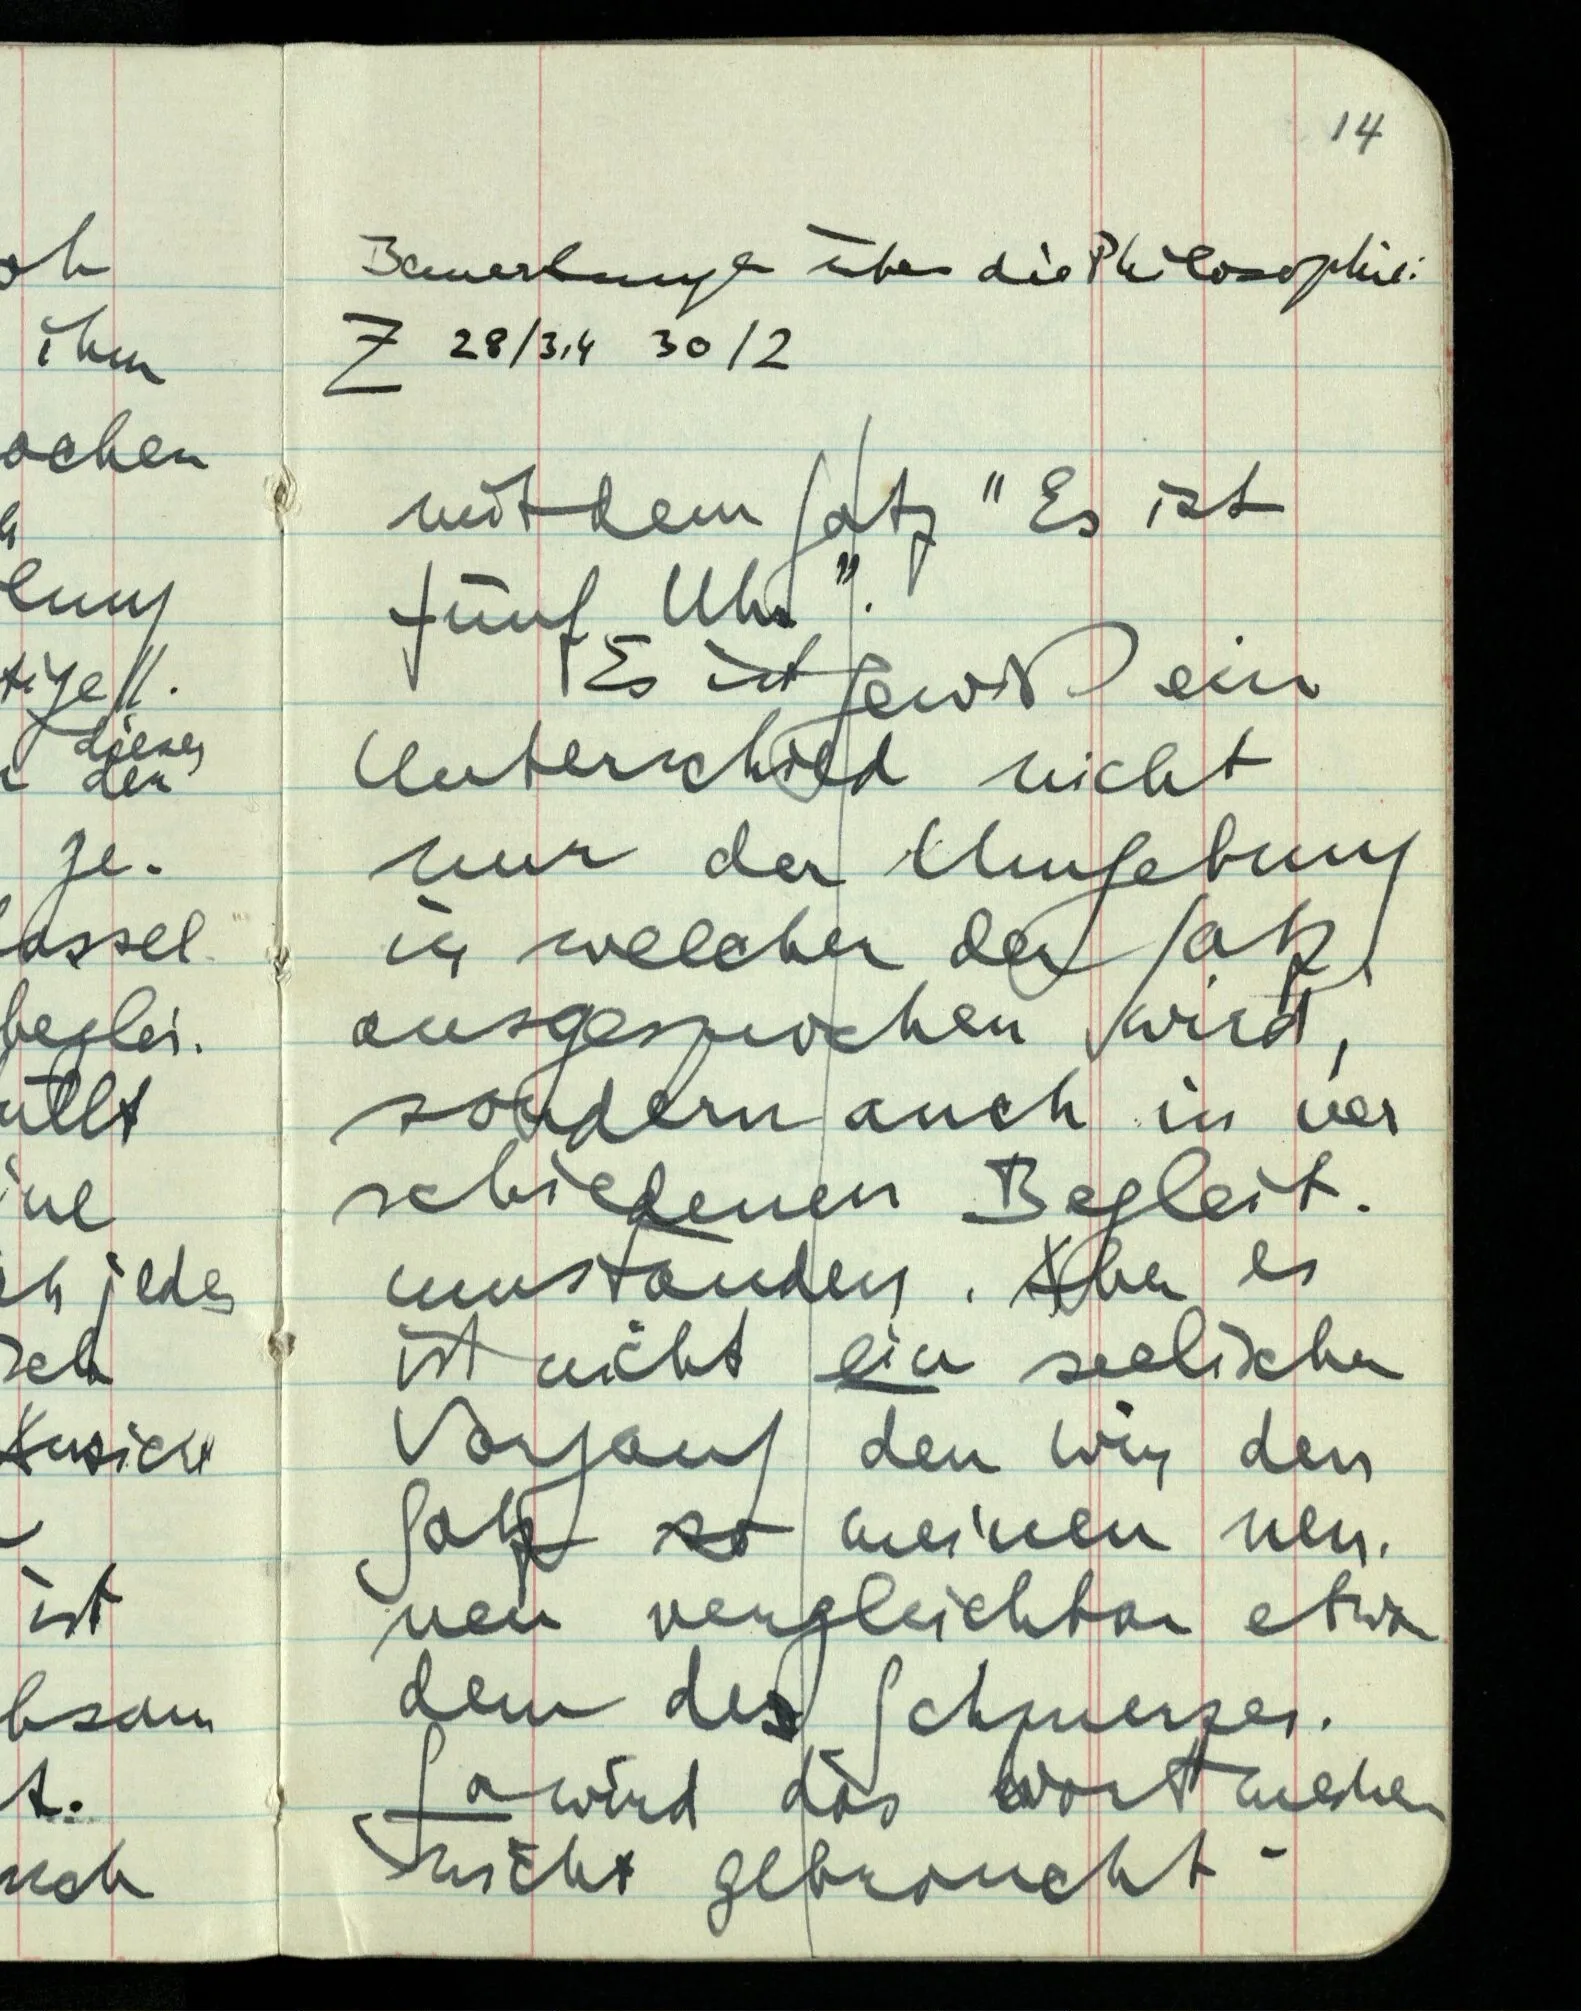 14
Bemerkungen über die Philosophie:
Z 28/3,4 30/2
mit dem Satz "Es ist
fünf Uhr".
Es ist gewiß ein
Unterschied nicht
nur der Umgebung
in welcher der Satz
ausgesprochen wird,
sondern auch in ver
schiedenen Begleit.
umständen. Aber es
ist nicht ein seelischer
Vorgang den wir den
Satz so meinen nen.
nen vergleichbar etwa
dem des Schmerzes.
So wird das Wort meinen
nicht gebraucht -
och
ihm
ochen
lung
tige//.
dieser
den
ge.
lassel
beglei.
üllt
ine
ich jedes
sch
Ansicht
ist
bsam
t.
isch